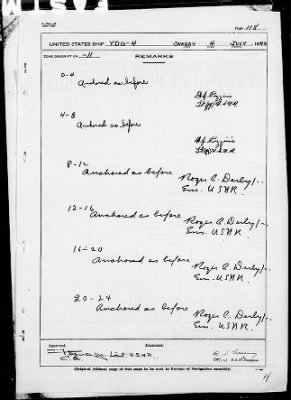 Page 118
UNITED STATES SHIP YOG-4 SUNDAY 4 JULY, 1943
ZONE DESCRIPTION -11 REMARKS
0-4
Anchored as before
4-8
Anchored as before
8-12
Anchored as before
Roger C. Derby Jr.
Ens. USNR.
12-16
Anchored as before
Roger C. Derby Jr.
Ens. USNR.
16-20
Anchored as before
Roger C. Derby Jr.
Ens. USNR.
20-24
Anchored as before
Roger C. Derby Jr.
Ens. USNR.
Approved:
Lieut. USNR.
(Original (ribbon) copy of this page to be sent to Bureau of Navigation monthly)